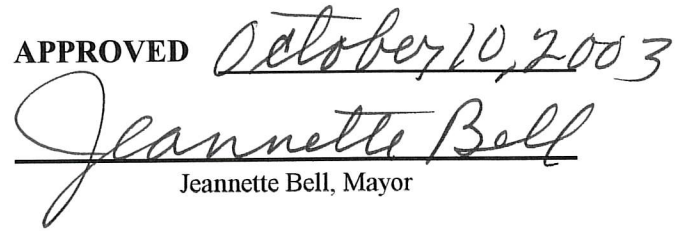 APPROVED October 10, 2003
Jeannette Bell
Jeannette Bell, Mayor